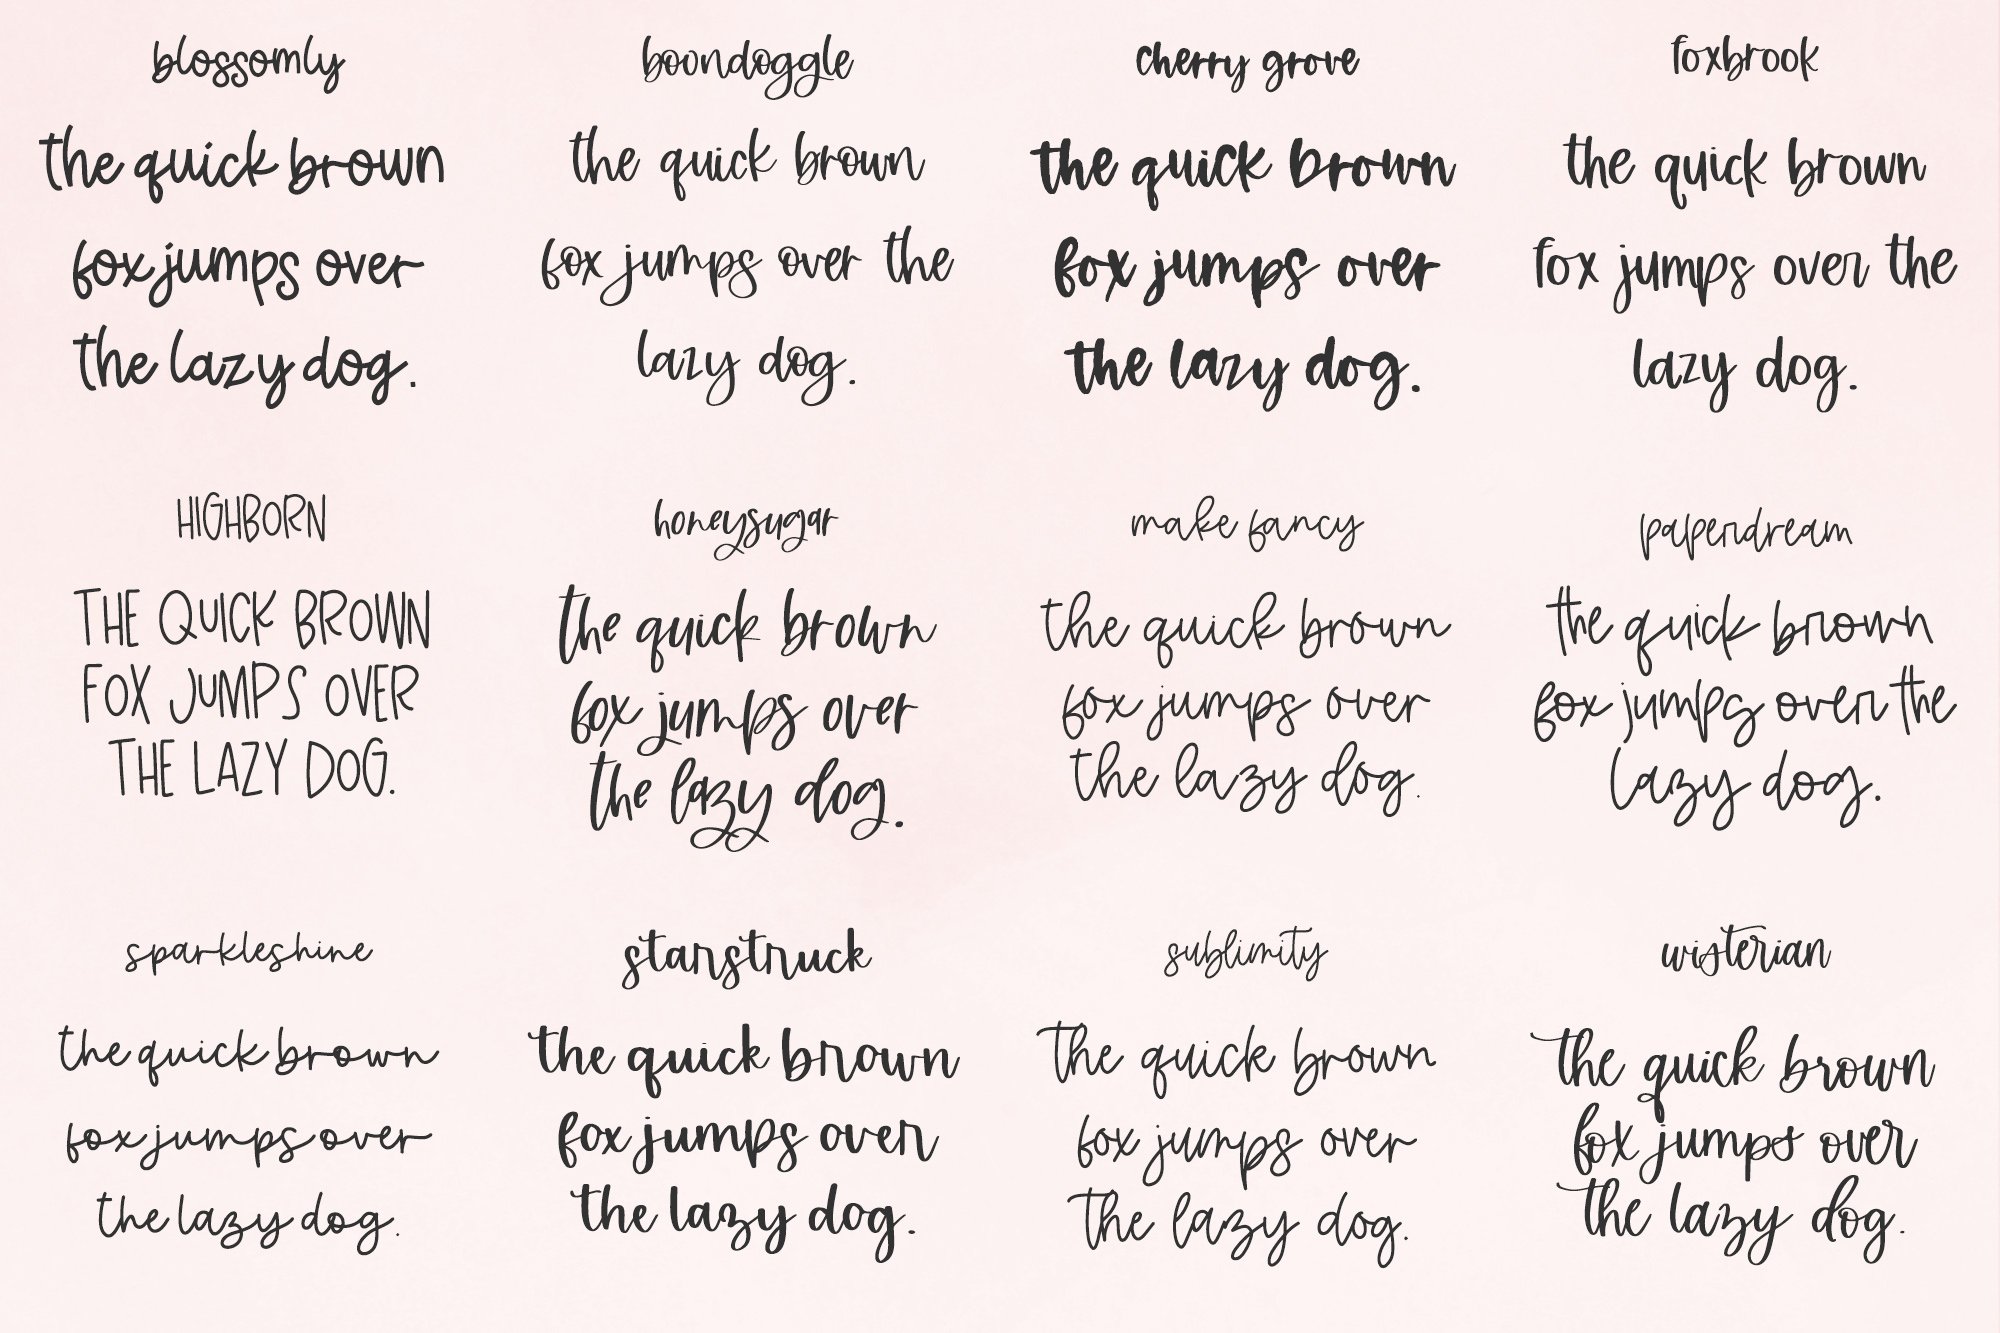 blossomly
the quick brown
fox jumps over
the lazy dog.
boondoggle
the quick brown
fox jumps over the
lazy dog.
cherry grove
the quick brown
fox jumps over
the lazy dog.
foxbrook
the quick brown
fox jumps over the
lazy dog.
HIGHBORN
THE QUICK BROWN
FOX JUMPS OVER
THE LAZY DOG.
honeysugar
the quick brown
fox jumps over
the lazy dog.
make fancy
the quick brown
fox jumps over
the lazy dog.
paperdream
the quick brown
fox jumps over the
lazy dog.
sparkleshine
the quick brown
fox jumps over
the lazy dog.
starstruck
the quick brown
fox jumps over
the lazy dog.
sublimity
the quick brown
fox jumps over
the lazy dog.
wisterian
the quick brown
fox jumps over
the lazy dog.